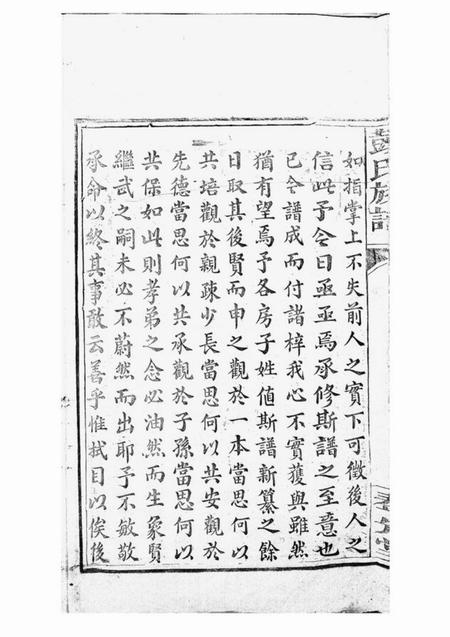 彭氏族譜
如指掌上不失前人之實下可徵後人之
信此予今日亟亟焉承修斯譜之至意也
已今譜成而付諸梓我心不實獲與雖然
猶有望焉予各房子姓値斯譜新纂之餘
日取其後賢而申之觀於一本當思何以
共培觀於親疎少長當思何以共安觀於
先德當思何以共承觀於子孫當思何以
共保如此則孝弟之念必油然而生象賢
繼武之嗣未必不蔚然而出耶予不敏敬
承命以終其事敢云善乎惟拭目以俟後